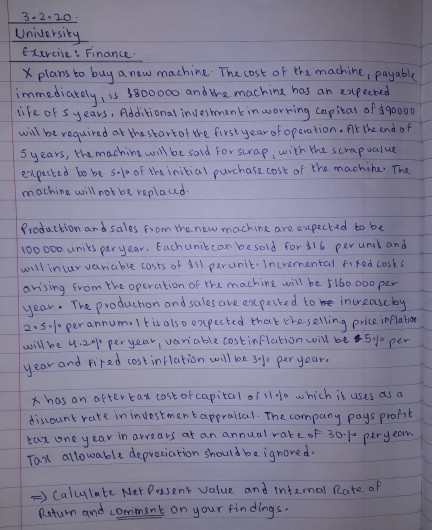 3.2.20.
University
Exercise: Finance.
X plans to buy a new machine. The cost of the machine, payable
immediately, is $800000 and the machine has an expected
life of 5 years. Additional investment in working capital of $90000
will be required at the start of the first year of operation. At the end of
5 years, the machine will be sold for scrap, with the scrap value
expected to be 5% of the initial purchase cost of the machine. The
machine will not be replaced.
Production and sales from the new machine are expected to be
100 000 units per year. Each unit can be sold for $16 per unit and
will incur variable costs of $11 per unit. Incremental fixed costs
arising from the operation of the machine will be $160 000 per
year. The production and sales are expected to increase by
2.5% per annum. It is also expected that the selling price inflation
will be 4.2% per year, variable cost inflation will be 5% per
year and fixed cost inflation will be 3% per year.
X has an after tax cost of capital of 11% which it uses as a
discount rate in investment appraisal. The company pays profit
tax one year in arrears at an annual rate of 30% per year.
Tax allowable depreciation should be ignored.
=> Calculate Net Present Value and Internal Rate of
Return and comment on your findings.